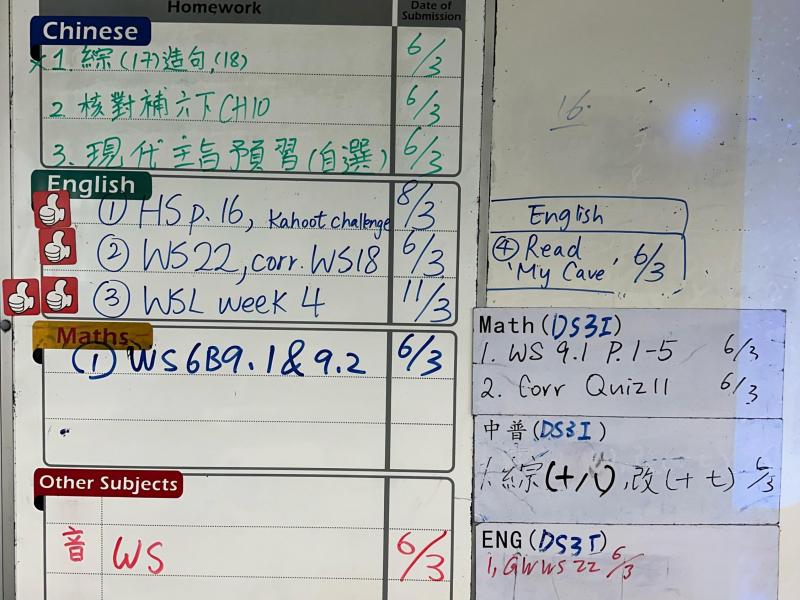 Homework
Date of Submission
Chinese
1. 綜(17)造句,(18) 6/3
2. 核對補六下CH10 6/3
3. 現代主旨預習(自選) 6/3
English
① HS p. 16, Kahoot challenge 8/3
② WS 22, corr. WS18 6/3
③ WSL week 4 11/3
Maths
① WS 6B9.1 & 9.2 6/3
Other Subjects
音 WS 6/3
16.
English
④ Read 'My Cave' 6/3
Math(DS3I)
1. WS 9.1 P.1-5 6/3
2. Corr Quiz 11 6/3
中普(DS3I)
綜(十八),改(十七) 6/3
ENG(DS3I)
1, GW WS 22 6/3